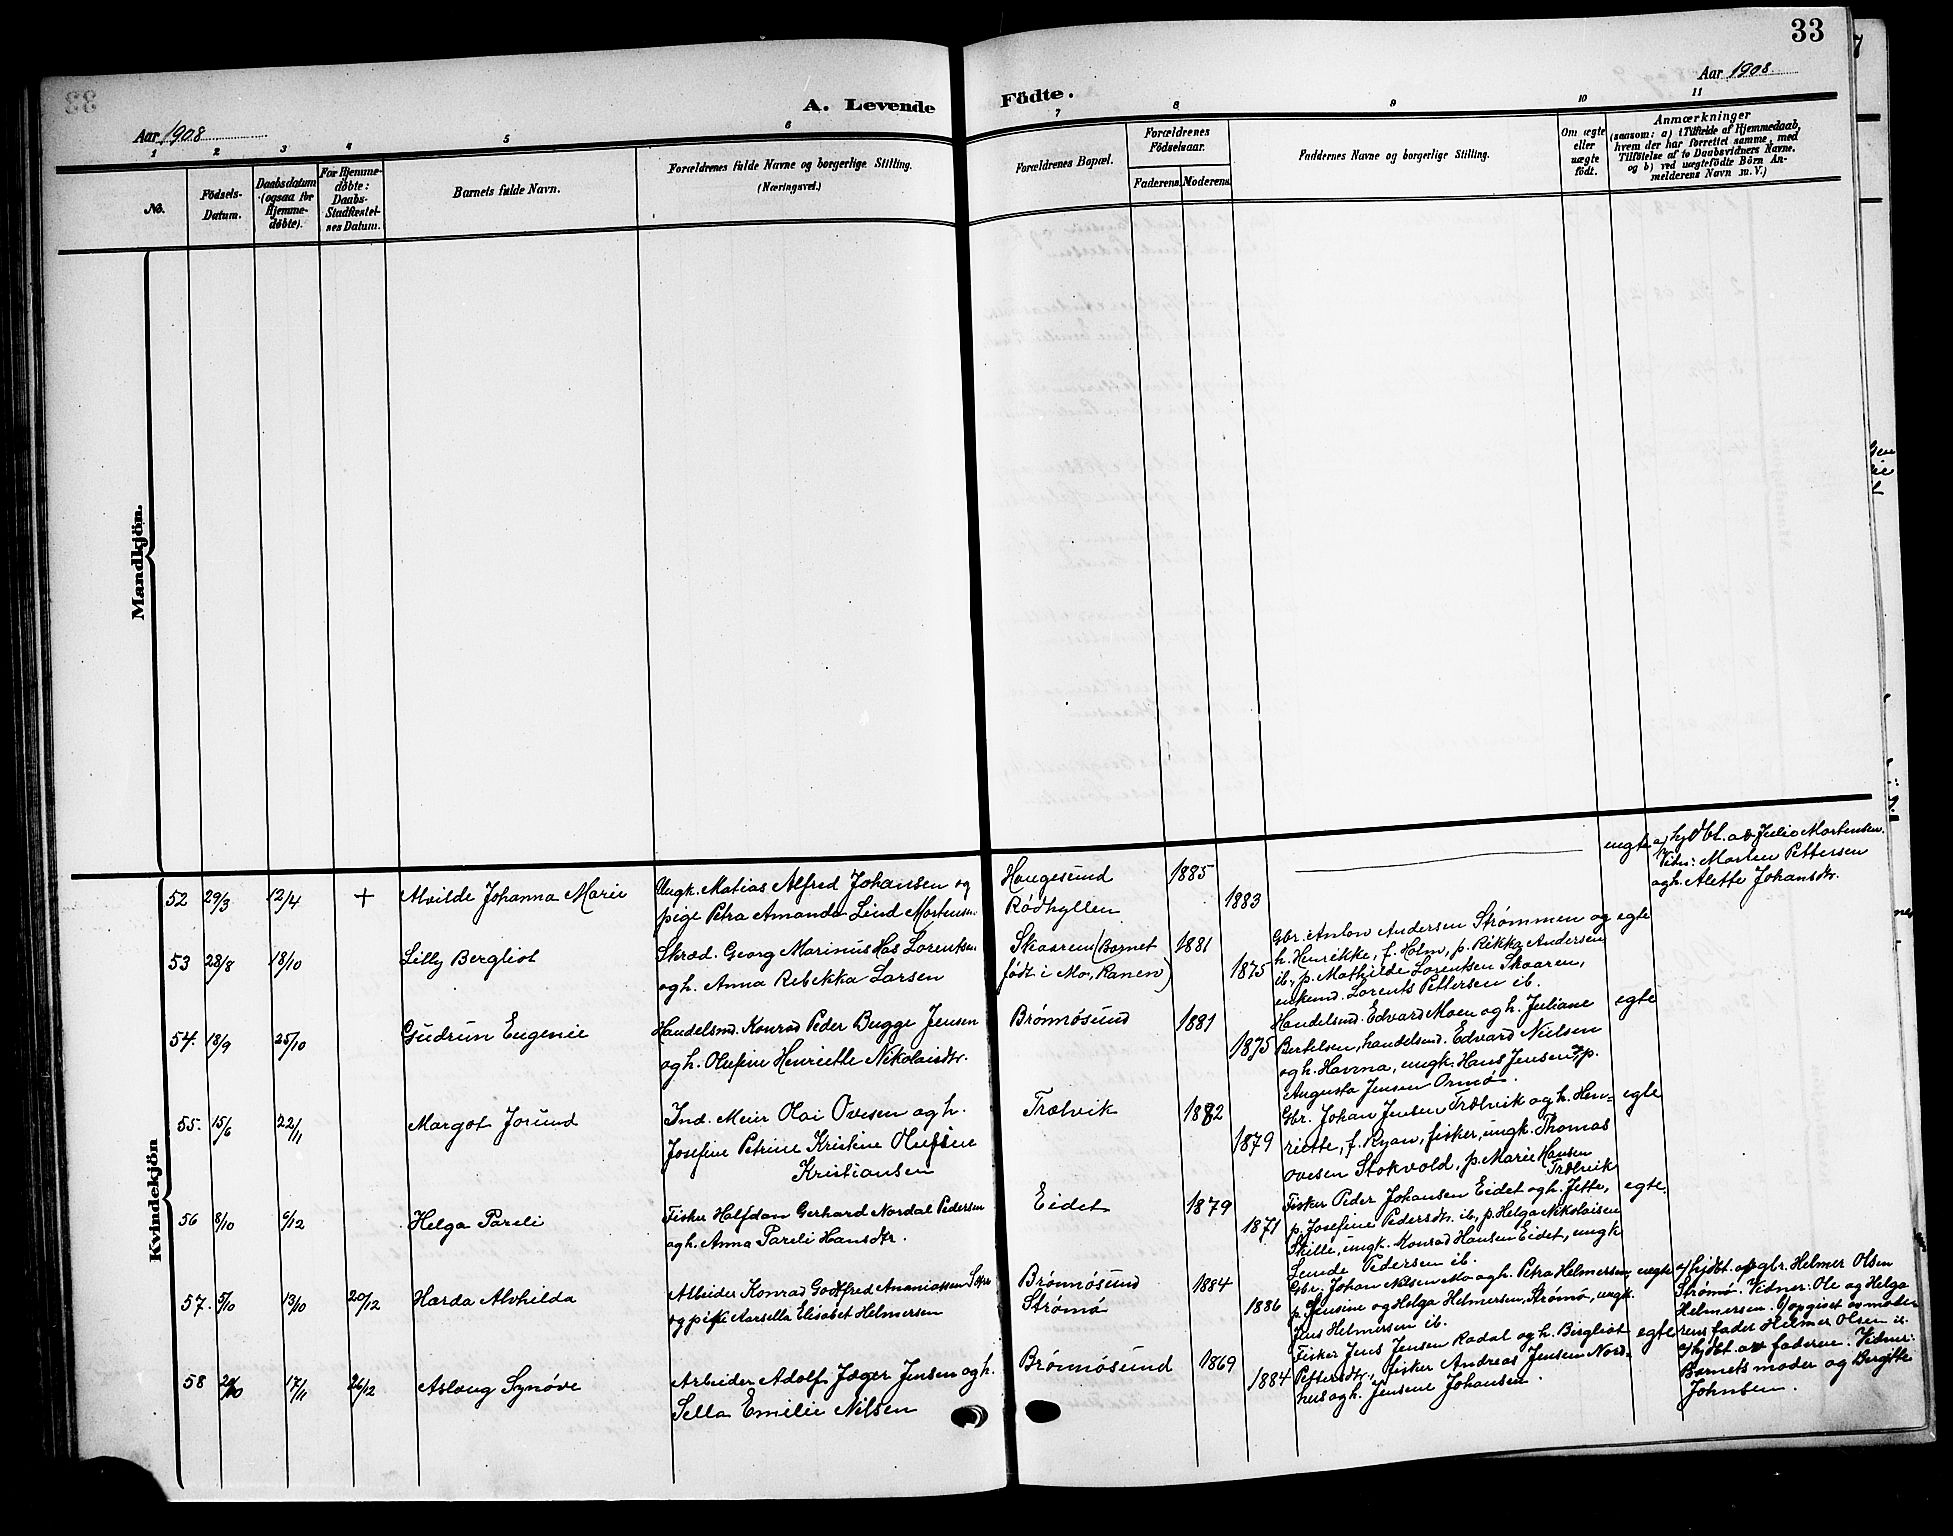 33
Aar 1908
A. Levende Födte.
Aar 1908
1 2 3 4 5 6 7 8 9 10 11
No.
Födsels-Datum.
Daabsdatum (ogsaa for Hjemme-döbte).
For Hjemme-döbte: Daabs-Stadfæstel-ses Datum.
Barnets fulde Navn.
Forældrenes fulde Navne og borgerlige Stilling.
(Næringsvei.)
Forældrenes Bopæl.
Forældrenes Födselsaar.
Faderens. Moderens.
Faddernes Navne og borgerlige Stilling.
Om ægte eller uægte födt.
Anmærkninger
(saasom: a) i Tilfælde af Hjemmedaab,
hvem der har forrettet samme, med
Tilföielse af to Daabsvidners Navne.
og b) ved uægtefödte Börn An-
melderens Navn m. V.)
Mandkjön.
Kvindekjön
52 29/3 12/4 + Alvilde Johanna Marie
Ungk. Matias Alfred Johansen og
pige Petra Amanda Lind Mortensen
Haugesund
Rödhyllen
1885 1883
uegte
a/ hjdbt. av Julie Mortensen.
Vidn: Morten Pettersen
og h. Alette Johansdtr.
53 28/8 18/10 Lilly Bergliot
Skræd. Georg Marinus Has Lorentsen
og h. Anna Rebekka Larsen
Skaaren (Barnet
født i Mo, Ranen)
1881 1875
Gbr. Anton Andersen Strømmen og
h. Henrikke, f. Holm, p. Rikka Andersen
ib., p. Mathilde Lorentsen Skaaren,
enkemd. Lorents Pettersen ib.
egte
54. 18/9 25/10 Gudrun Eugenie
Handelsmd. Konrad Peder Bugge Jensen
og h. Olufine Henriette Nikolaisdtr.
Brønnøsund
1881 1875
Handelsmd. Edvard Moen og h. Juliane
Bertelsen, handelsmd. Edvard Nielsen
og h. Havina, ungk. Hans Jensen, p.
Augusta Jensen Ormø.
egte
55. 15/6 22/11 Margot Jorund
Ind. Meier Olai Ovesen og h.
Josefine Petrine Kristine Olufine
Kristiansen
Trælvik
1882 1879
Gbr. Johan Jensen Trælvik og h. Hen-
riette, f. Ryan, fisker, ungk. Thomas
Ovesen Stokvold, p. Marie Hansen
Trælvik
egte
56 8/10 6/12 Helga Pareli
Fisker Halfdan Gerhard Nordal Pedersen
og h. Anna Pareli Hansdtr.
Eidet
1879 1871
Fisker Peder Johansen Eidet og h. Jette,
p. Josefine Pedersdtr. ib., p. Helga Nikolaisen
Skille, ungk. Konrad Hansen Eidet, ungk
Pedersen ib.
egte.
57. 5/10 13/10 20/12 Harda Alvhilda
Arbeider Konrad Godtfred Ananiassen
og pike Aarsella Elisabet Helmersen
Brønnøsund
Strømø
1884 1886
Gbr. Johan Nilsen Mo og h. Petra Helmersen
p. Jensine og Helga Helmersen, Strømø, ungk.
Jens Helmersen ib.
uegte
a/ hjdbt. av gbr. Helmer Olsen
Strømø. Vidner: Ole og Helga
Helmersen. b/ opgivet av mode-
rens fader Helmer Olsen ib
58 20/10 17/11 26/12 Aslaug Synøve
Arbeider Adolf Jæger Jensen og h.
Sella Emilie Nilsen
Brønnøsund
1869 1884
Fisker Jens Jensen Rodal og h. Bergliot
Pettersdtr., fisker Andreas Jensen Nord-
hus og h. Jensine Johansen.
egte
a/ hjdbt. av faderen. Vidner:
Barnets moder og Bergitte
Johnsen.